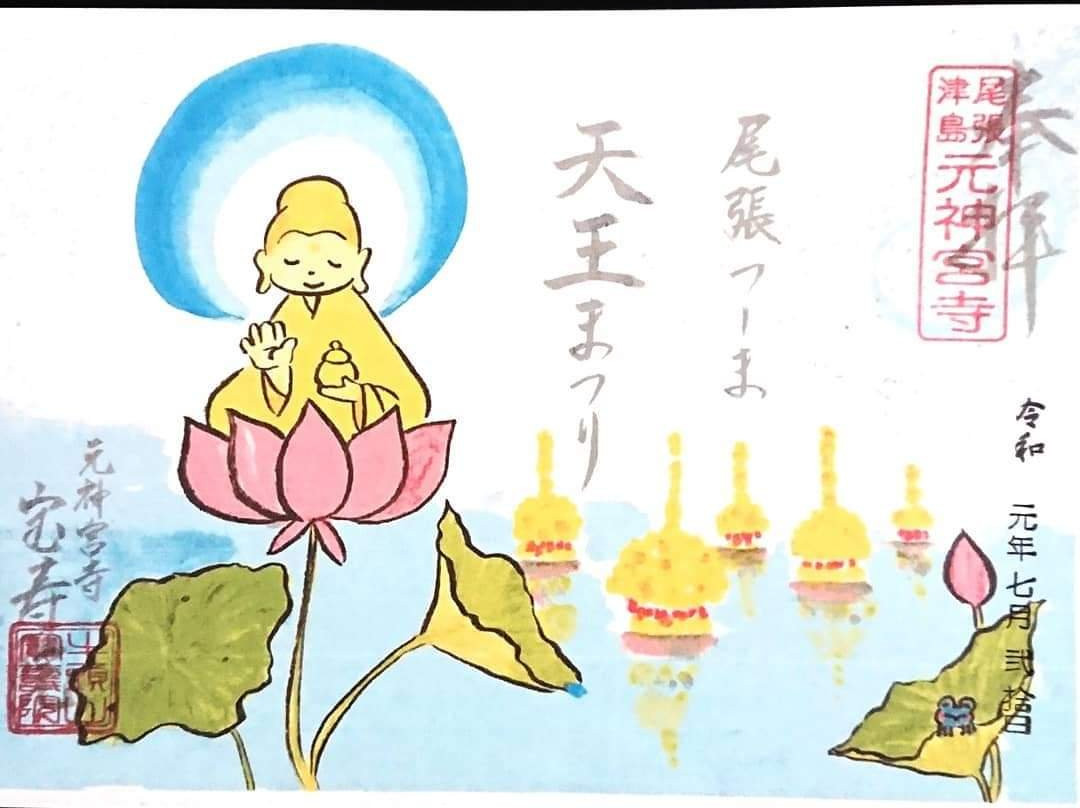 奉拝
尾張
津島
元神宮寺
令和 元年七月 弐拾日
尾張つしま
天王まつり
元神宮寺
宝寿